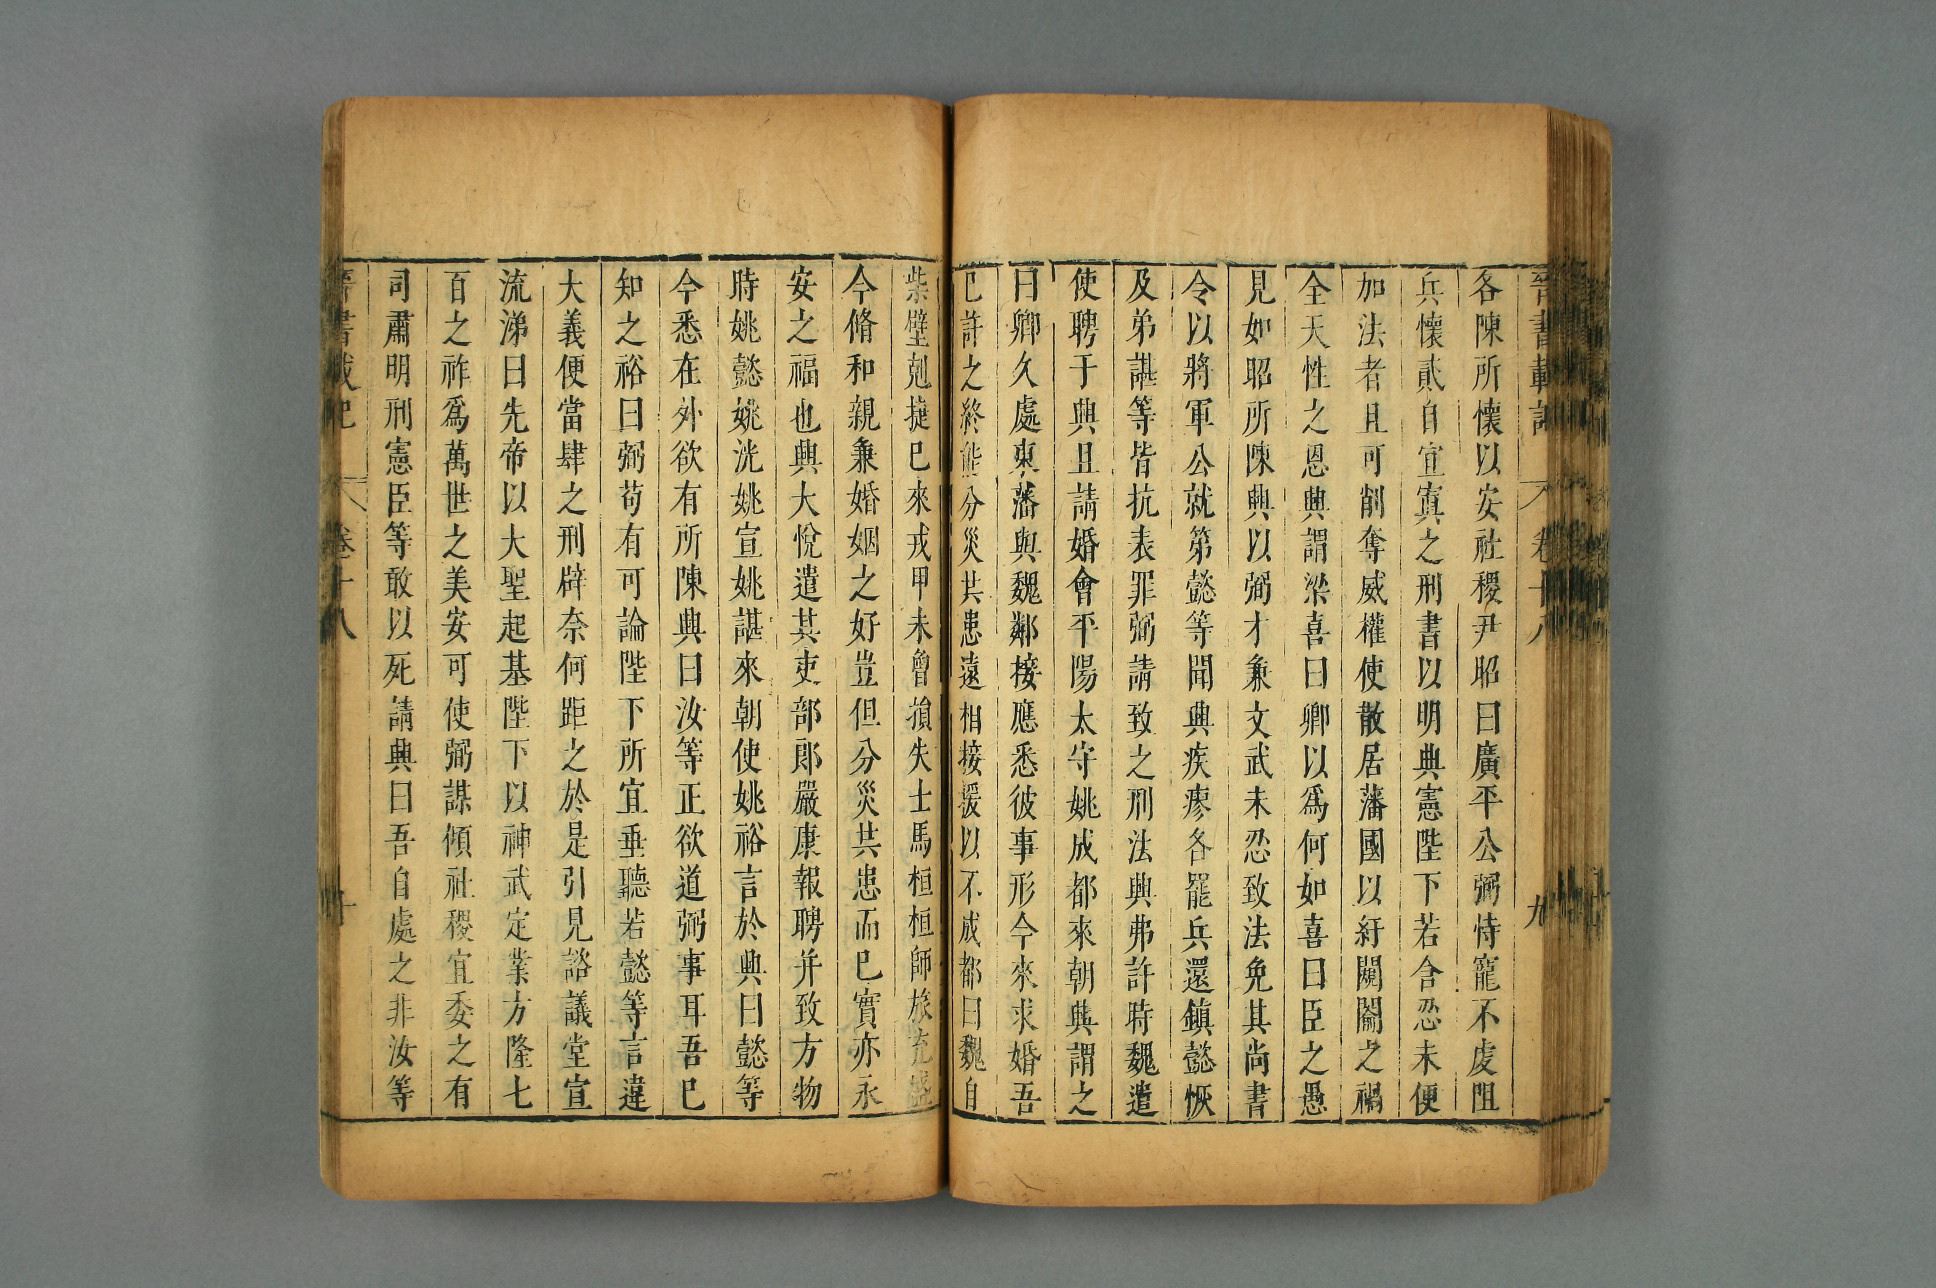 晉書載記 卷十八 九
各陳所懷以安社稷尹昭曰廣平公弼恃寵不虔阻
兵懷貳自宜寘之刑書以明典憲陛下若含忍未便
加法者且可削奪威權使散居藩國以紓闚闟之禍
全天性之恩興謂梁喜曰卿以爲何如喜曰臣之愚
見如昭所陳興以弼才兼文武未忍致法免其尚書
令以將軍公就第懿等聞興疾瘳各罷兵還鎮懿恢
及弟諶等皆抗表罪弼請致之刑法興弗許時魏遣
使聘于興且請婚會平陽太守姚成都來朝興謂之
曰卿久處東藩與魏鄰接應悉彼事形今來求婚吾
已許之終能分災共患遠相接援以不成都曰魏自
柴壁剋捷已來戎甲未曾損失士馬桓桓師旅充盛
今脩和親兼婚姻之好豈但分災共患而已實亦永
安之福也興大悅遣其吏部郎嚴康報聘并致方物
時姚懿姚洸姚宣姚諶來朝使姚裕言於興曰懿等
今悉在外欲有所陳興曰汝等正欲道弼事耳吾已
知之裕曰弼苟有可論陛下所宜垂聽若懿等言違
大義便當肆之刑辟奈何距之於是引見諮議堂宣
流涕曰先帝以大聖起基陛下以神武定業方隆七
百之祚爲萬世之美安可使弼謀傾社稷宜委之有
司肅明刑憲臣等敢以死請興曰吾自處之非汝等
晉書載記 卷十八 十